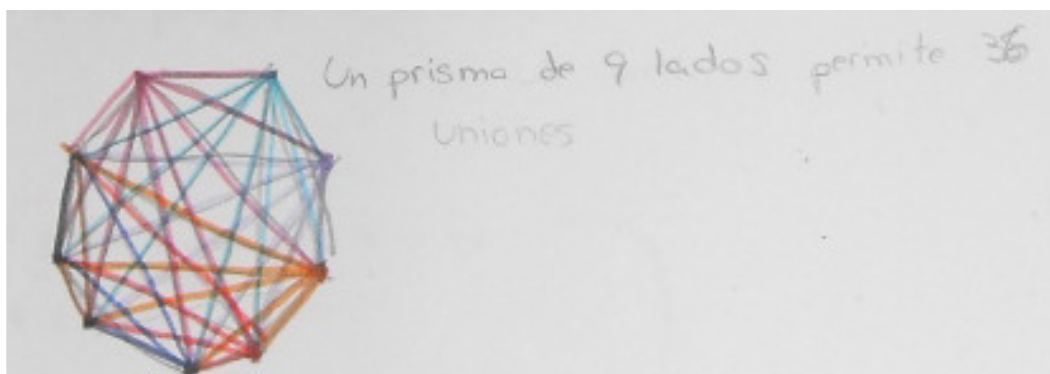 Un prisma de 9 lados permite 36
uniones